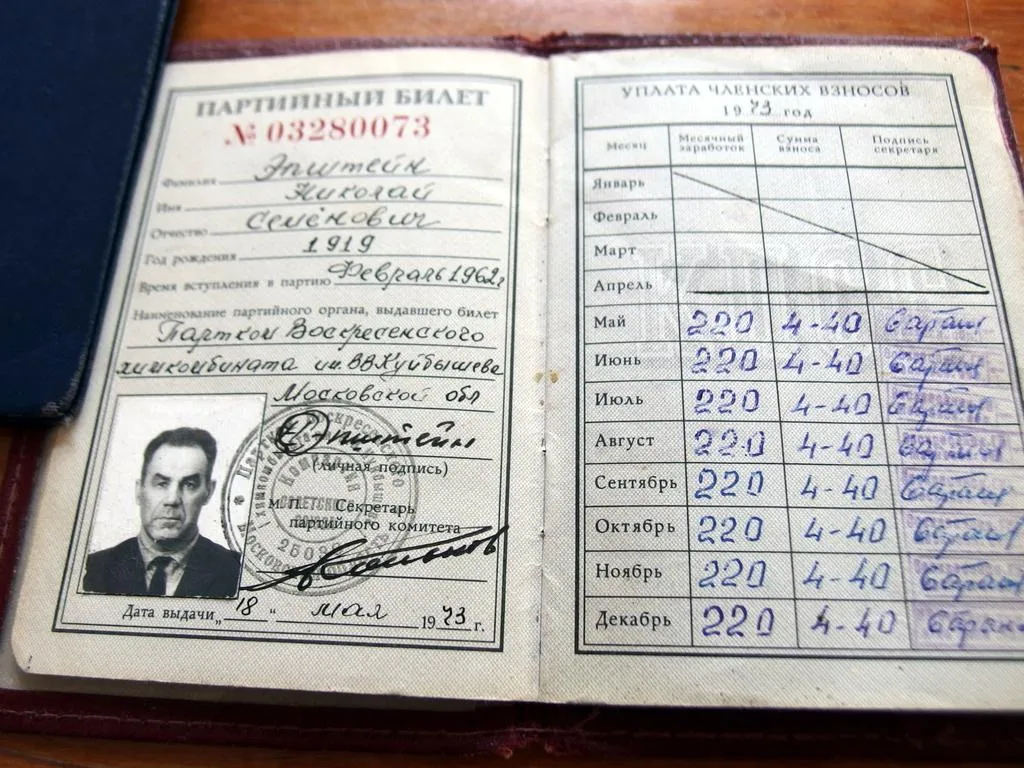 ПАРТИЙНЫЙ БИЛЕТ
№ 03280073
Фамилия Эпштейн
Имя Николай
Отчество Семёнович
Год рождения 1919
Время вступления в партию Февраль 1962г
Наименование партийного органа, выдавшего билет
Партком Воскресенского
химкомбината им. ВВКуйбышева
Московской обл
Эпштейн
(личная подпись)
М.П. Секретарь
партийного комитета
Дата выдачи „18" мая 1973 г.
УПЛАТА ЧЛЕНСКИХ ВЗНОСОВ
1973 год
Месяц Месячный заработок Сумма взноса Подпись секретаря
Январь
Февраль
Март
Апрель
Май 220 4-40
Июнь 220 4-40
Июль 220 4-40
Август 220 4-40
Сентябрь 220 4-40
Октябрь 220 4-40
Ноябрь 220 4-40
Декабрь 220 4-40